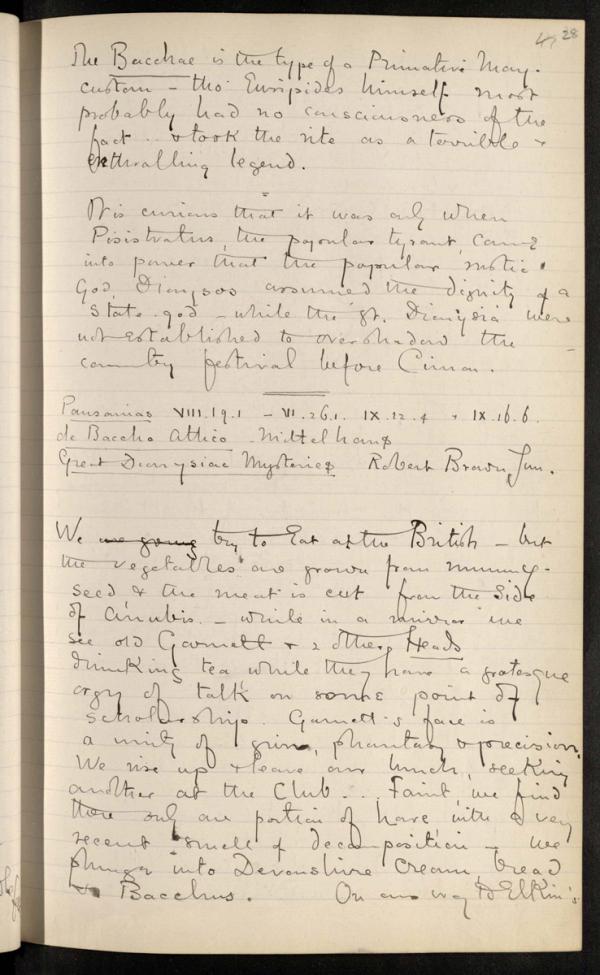 28
The Bacchae is the type of a Primative May-
custom – tho' Euripides himself most
probably had no consciousness of the
fact .. & took the rite as a terrible &
enthralling legend.
It is curious that it was only when
Pisistratus, the popular tyrant, came
into power that the popular rustic
God, Dionysos assumed the dignity of a
State-god – while the gt. Dionysia were
not established to overshadow the
country festival before Cimon.
Pausanias VIII.19.1 – VI.26.1. IX.12.4 & IX.16.6.
de Baccho Attico – Mittelhaus
Great Dionysiac Myths Robert Brown, Jun.
We are going try to Eat at the British – but
the vegetables are grown from mummy-
seed & the meat is cut from the side
of Anubis. – while in a mirror we
see old Garnett & 2 other Heads
drinking tea while they have a grotesque
orgy of talk on some point of
scholarship. Garnett's face is
a unity of grin, phantasy & precision.
We rise up & leave our lunch, seeking
another at the Club... Faint, we find
there only one portion of hare with a very
recent smell of decomposition – we
plunge into Devonshire cream, bread
& Bacchus. On our way to Elkin's